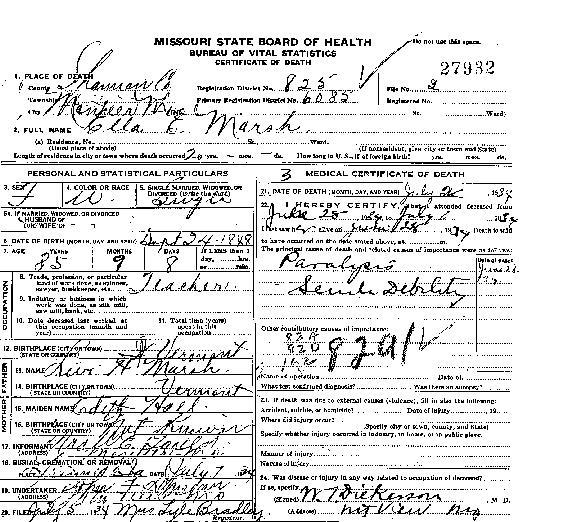 Do not use this space.
MISSOURI STATE BOARD OF HEALTH
BUREAU OF VITAL STATISTICS
CERTIFICATE OF DEATH
27932
1. PLACE OF DEATH
County Shannon Co Registration District No. 825 File No. 2
Township Primary Registration District No. 6085 Registered No.
City No. St. Ward)
2. FULL NAME Ella E. Marsh
(a) Residence, No. St. Ward.
(Usual place of abode) (If nonresident, give city or town and State)
Length of residence in city or town where death occurred 20 yrs. mos. ds. How long in U. S., if of foreign birth? yrs. mos. ds.
PERSONAL AND STATISTICAL PARTICULARS
3. SEX F 4. COLOR OR RACE W 5. SINGLE, MARRIED, WIDOWED, OR DIVORCED (write the word) Single
5a. IF MARRIED, WIDOWED, OR DIVORCED
HUSBAND OF
(OR) WIFE OF
6. DATE OF BIRTH (MONTH, DAY, AND YEAR) Sept 24 - 1848
7. AGE YEARS 85 MONTHS 9 DAYS 8 If LESS than 1
day, hrs.
or min.
OCCUPATION
8. Trade, profession, or particular kind of work done, as spinner, sawyer, bookkeeper, etc. Teacher
9. Industry or business in which work was done, as silk mill, saw mill, bank, etc.
10. Date deceased last worked at this occupation (month and year)
11. Total time (years) spent in this occupation
12. BIRTHPLACE (CITY OR TOWN) Vermont
(STATE OR COUNTRY)
FATHER
13. NAME H. Marsh
14. BIRTHPLACE (CITY OR TOWN) Vermont
(STATE OR COUNTRY)
MOTHER
15. MAIDEN NAME Edith Hall
16. BIRTHPLACE (CITY OR TOWN) Not Known
(STATE OR COUNTRY)
17. INFORMANT
(ADDRESS)
18. BURIAL, CREMATION, OR REMOVAL
PLACE DATE July 7 1934
19. UNDERTAKER
(ADDRESS)
20. FILED July 5 1934 Mrs Lyle Bradley
Registrar.
3 MEDICAL CERTIFICATE OF DEATH
21. DATE OF DEATH (MONTH, DAY, AND YEAR) July 1934
22. I HEREBY CERTIFY, That I attended deceased from
June 25 1934 July 1934
I last saw alive on 1934 Death is said
to have occurred on the date stated above, at m.
The principal cause of death and related causes of importance were as follows:
Paralysis
Senile Debility
Other contributory causes of importance:
82A
82D
162
Name of operation Date of
What test confirmed diagnosis? Was there an autopsy?
23. If death was due to external causes (violence), fill in also the following:
Accident, suicide, or homicide? Date of injury 19
Where did injury occur?
(Specify city or town, county, and State)
Specify whether injury occurred in industry, in home, or in public place.
Manner of injury
Nature of injury
24. Was disease or injury in any way related to occupation of deceased?
If so, specify
(Signed) Dickerson M. D.
(Address) Mt View Mo